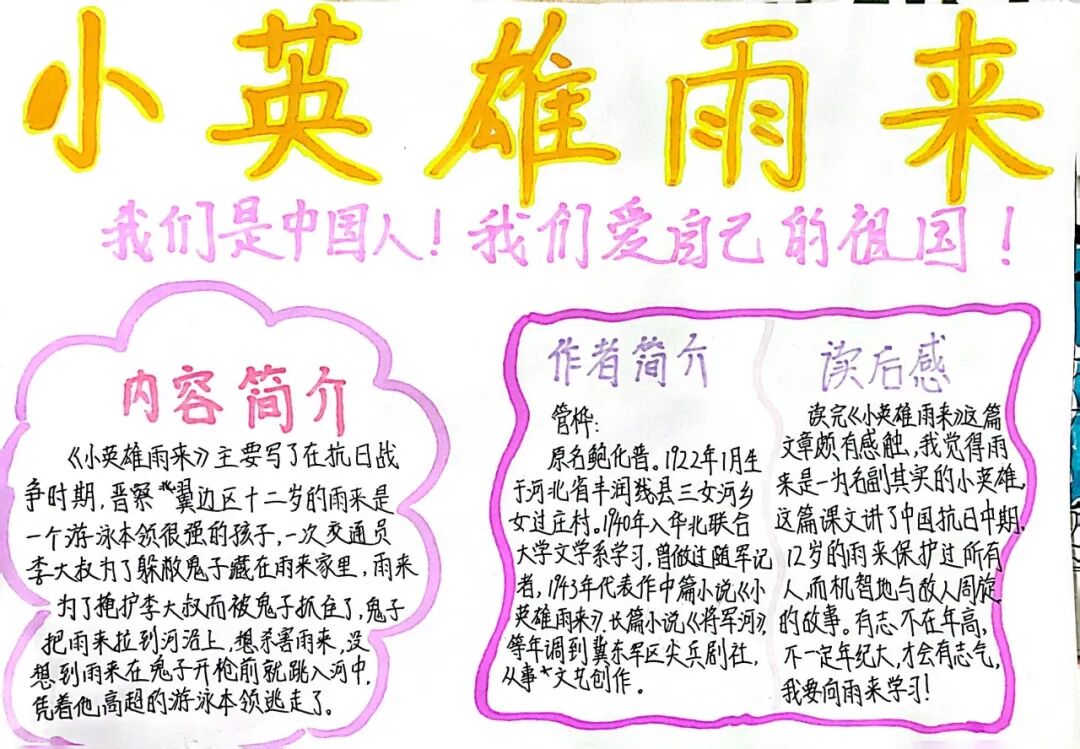 小英雄雨来
我们是中国人！我们爱自己的祖国！
内容简介
《小英雄雨来》主要写了在抗日战
争时期，晋察翼边区十二岁的雨来是
一个游泳本领很强的孩子，一次交通员
李大叔为了躲敌鬼子藏在雨来家里，雨来
为了掩护李大叔而被鬼子抓住了，鬼子
把雨来拉到河沿上，想杀害雨来，没
想到雨来在鬼子开枪前就跳入河中，
凭着他高超的游泳本领逃走了。
作者简介
管桦：
原名鲍化普。1922年1月生
于河北省丰润县三女河乡
女过庄村。1940年入华北联合
大学文学系学习，曾做过随军记
者，1943年代表作中篇小说《小
英雄雨来》，长篇小说《将军河》，
等年调到冀东军区尖兵剧社，
从事文艺创作。
读后感
读完《小英雄雨来》这篇
文章颇有感触，我觉得雨
来是一为名副其实的小英雄，
这篇课文讲了中国抗日中期，
12岁的雨来保护过所有
人，而机智地与敌人周旋
的故事。有志不在年高，
不一定年纪大，才会有志气，
我要向雨来学习！